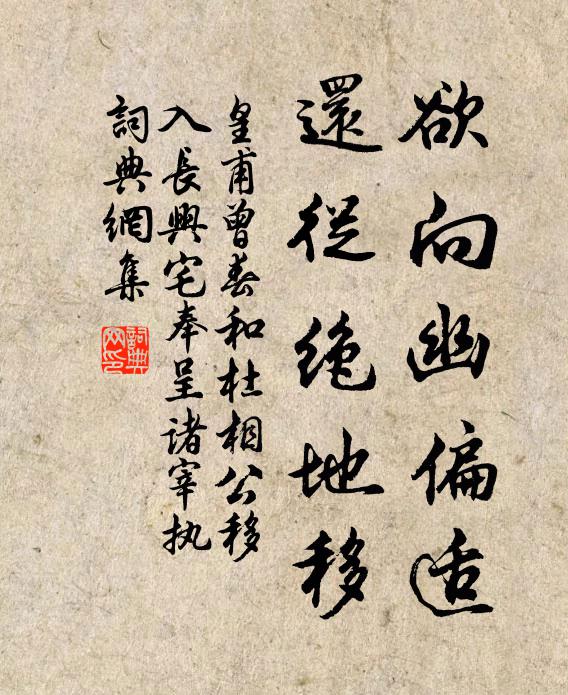 欲向幽偏适
還從绝地移
皇甫曾春和杜相公移
入長興宅奉呈诸宰执
詞典網集
詞典网印